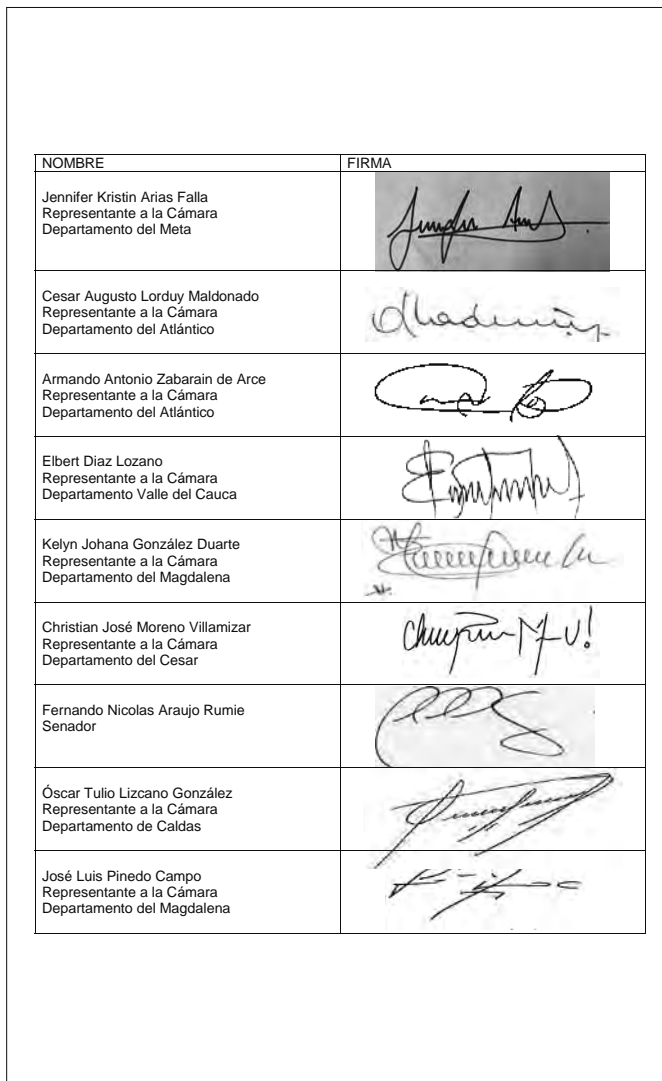 NOMBRE
FIRMA
Jennifer Kristin Arias Falla
Representante a la Cámara
Departamento del Meta
Cesar Augusto Lorduy Maldonado
Representante a la Cámara
Departamento del Atlántico
Armando Antonio Zabarain de Arce
Representante a la Cámara
Departamento del Atlántico
Elbert Diaz Lozano
Representante a la Cámara
Departamento Valle del Cauca
Kelyn Johana González Duarte
Representante a la Cámara
Departamento del Magdalena
Christian José Moreno Villamizar
Representante a la Cámara
Departamento del Cesar
Fernando Nicolas Araujo Rumie
Senador
Óscar Tulio Lizcano González
Representante a la Cámara
Departamento de Caldas
José Luis Pinedo Campo
Representante a la Cámara
Departamento del Magdalena